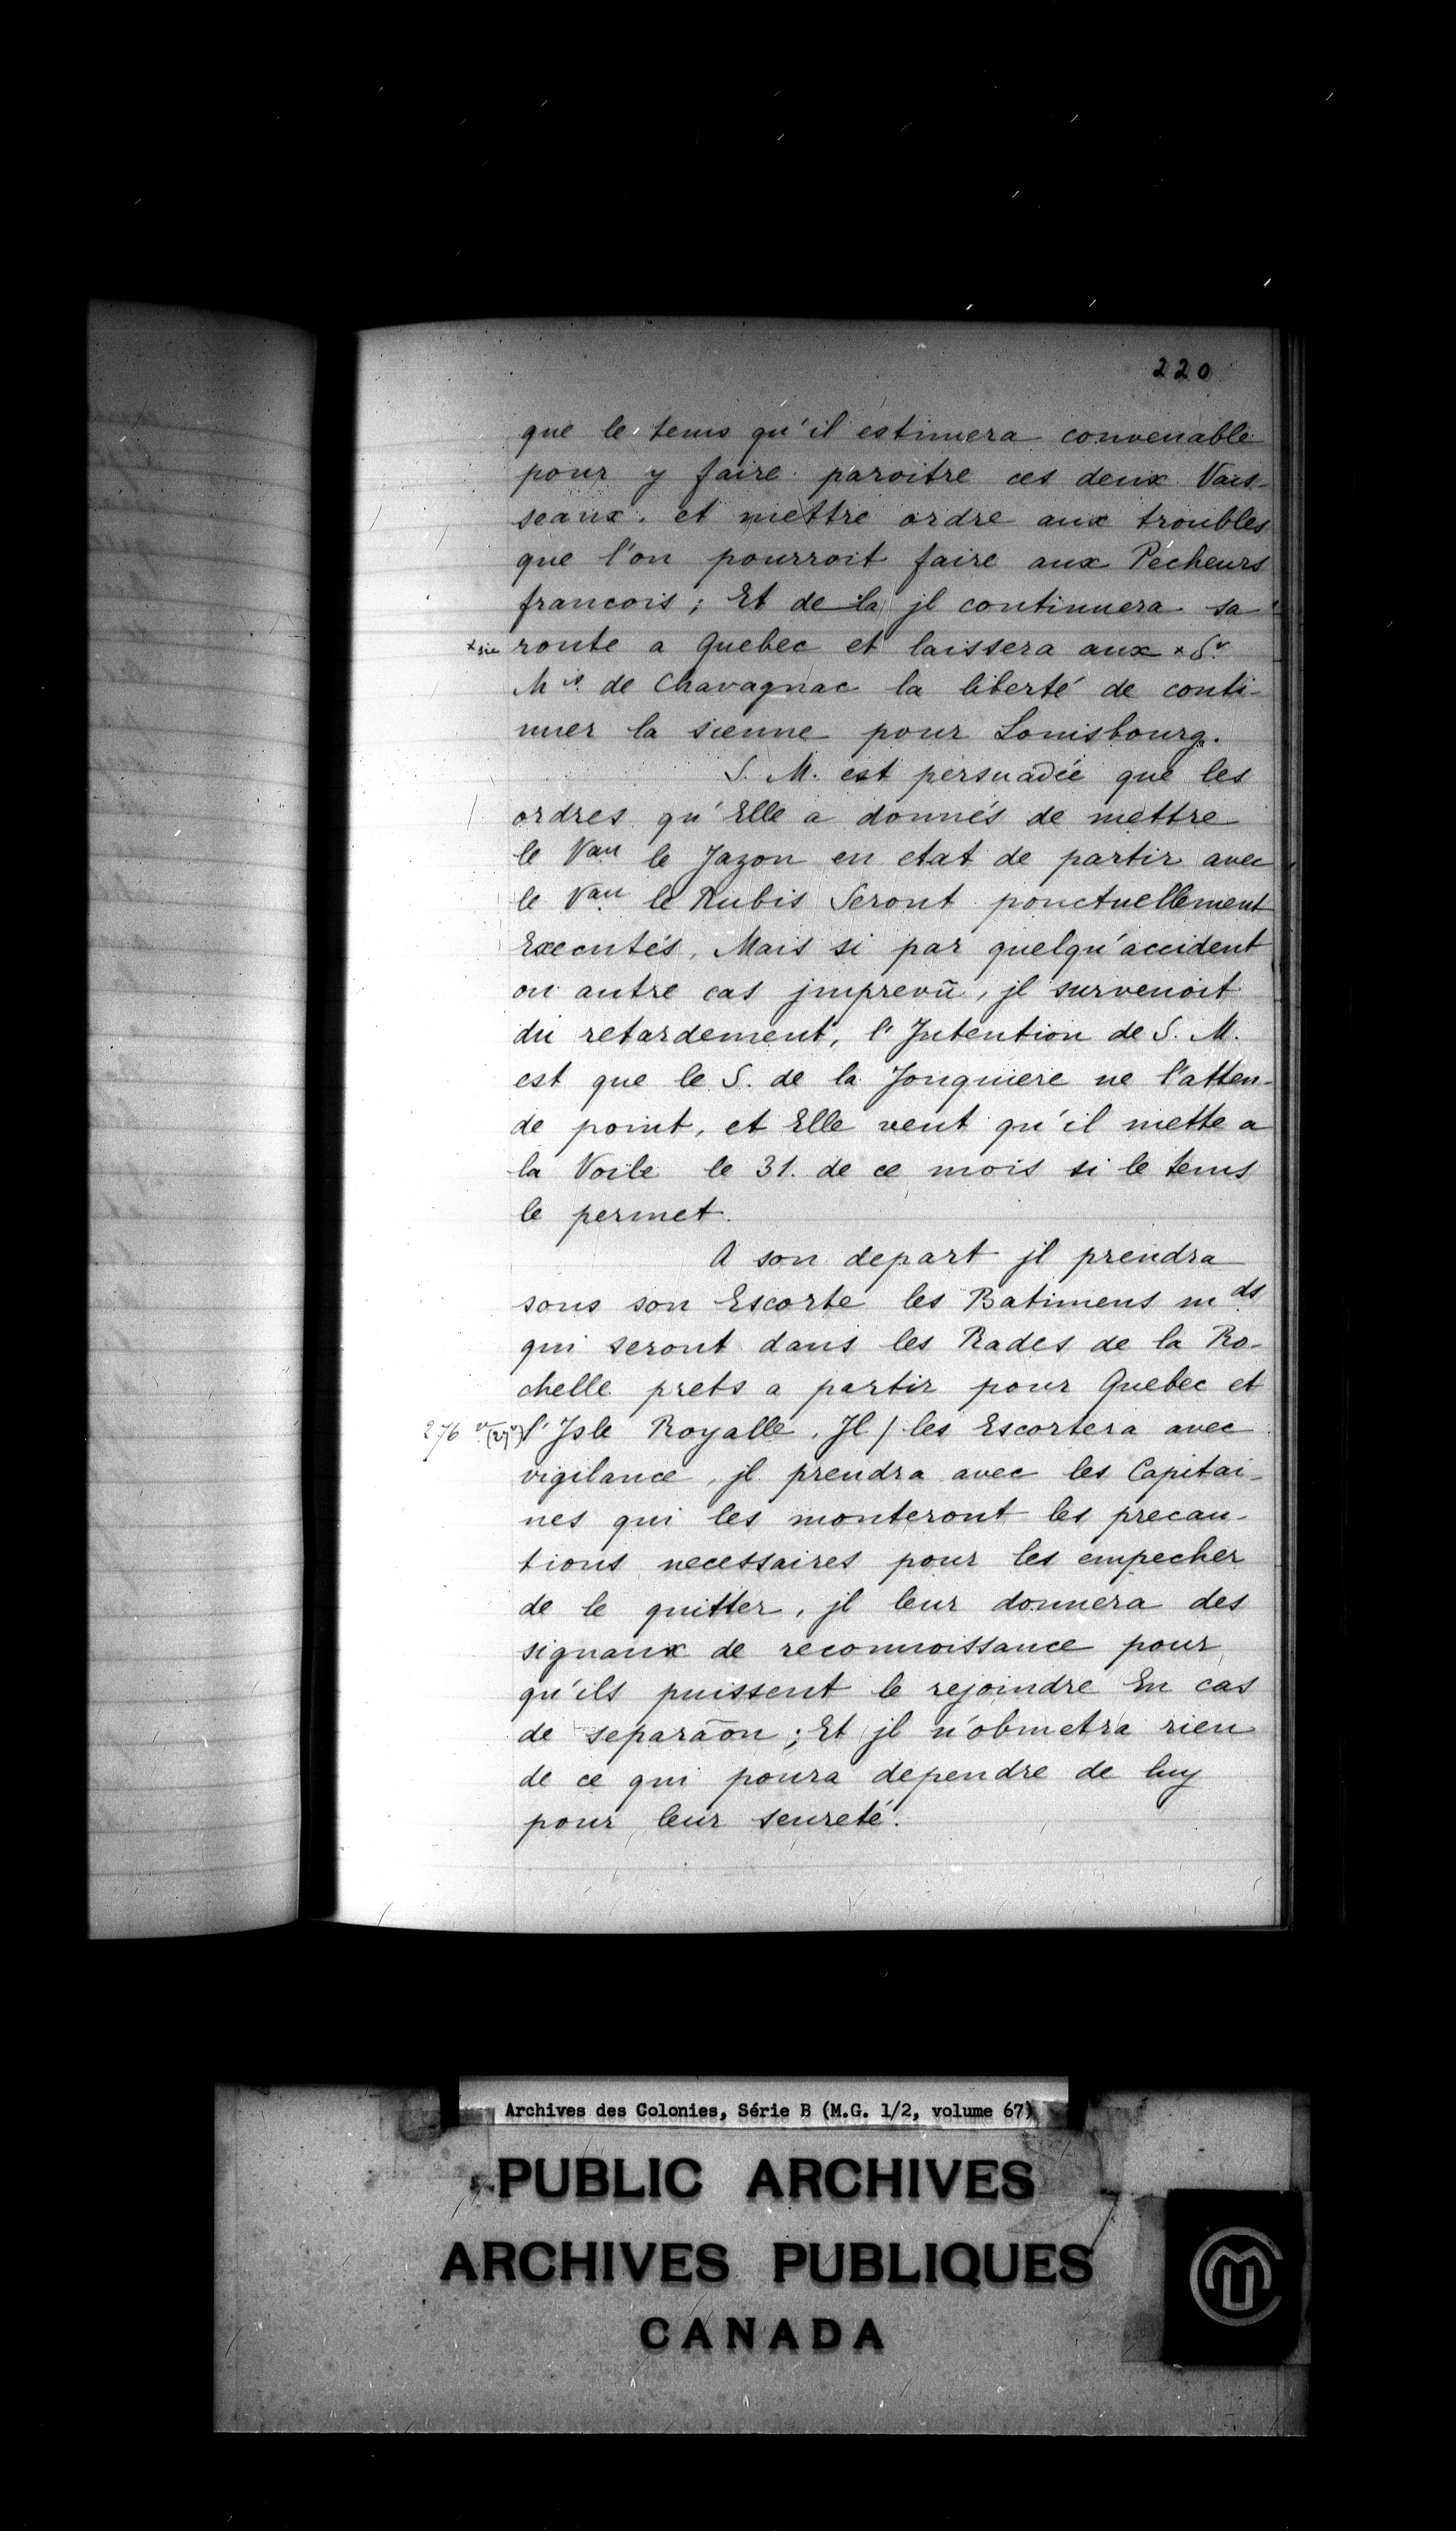 220
que le tems qu'il estimera convenable
pour y faire paroitre ces deux Vais-
seaux. et mettre ordre aux troubles
que l'on pourroit faire aux Pecheurs
francois; Et de la jl continuera sa
x sic route a Quebec et laissera aux x Sr.
Mis. de Chavagnac la liberté de conti-
nuer la sienne pour Louisbourg.
S. M. est persuadée que les
ordres qu'Elle a donnés de mettre
le Vau le Jazon en etat de partir avec
le Vau le Rubis Seront ponctuellement
Executés, Mais si par quelqu'accident
ou autre cas jmprevû, jl survenoit
du retardement, l'Intention de S. M.
est que le S. de la Jonquiere ne l'atten-
de point, et Elle veut qu'il mette a
la Voile le 31. de ce mois si le tems
le permet.
A son depart jl prendra
sous son Escorte les Batimens mds
qui seront dans les Rades de la Ro-
chelle prets a partir pour Quebec et
276 v l'Isle Royalle, Jl / les Escortera avec
vigilance, jl prendra avec les Capitai-
nes qui les monteront les precau-
tions necessaires pour les empecher
de le quitter, jl leur donnera des
signaux de reconnoissance pour
qu'ils puissent le rejoindre En cas
de separãon; Et jl n'obmetra rien
de ce qui poura dependre de luy
pour leur seureté.
Archives des Colonies, Série B (M.G. 1/2, volume 67)
PUBLIC ARCHIVES
ARCHIVES PUBLIQUES
CANADA